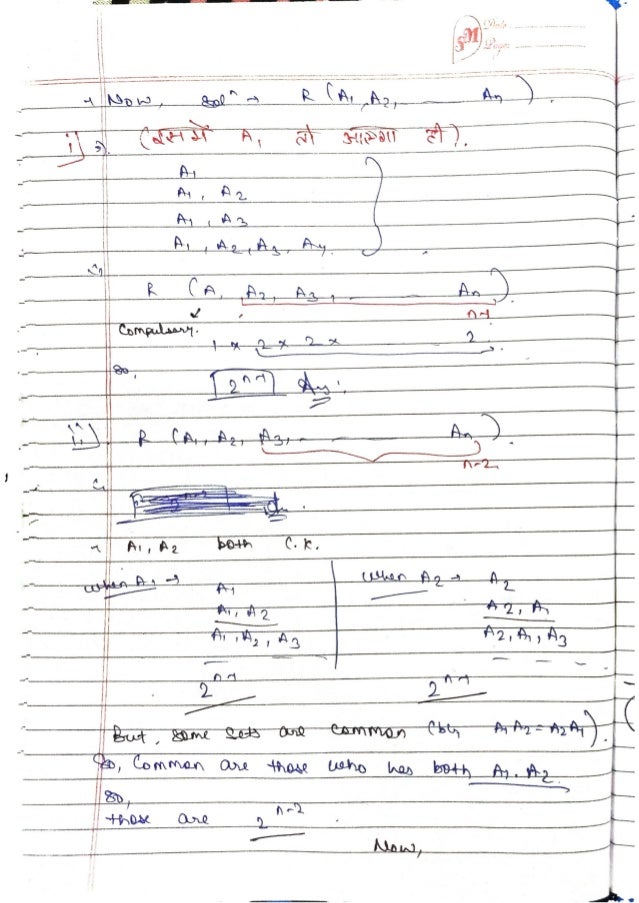 SM Date
Page
Now, sol^n → R (A1, A2, ---- An).
i) (इसमें A1 तो आएगा ही).
A1
A1, A2
A1, A3
A1, A2, A3, A4
R (A1, A2, A3, ---- An)
n-1
Compulsory.
1 × 2 × 2 × 2
so,
2^n-1 Ans:
ii) R (A1, A2, A3, ---- An).
n-2
A1, A2 both C.K.
when A1 → A1
A1, A2
A1, A2, A3
2^n-1
when A2 → A2
A2, A1
A2, A1, A3
2^n-1
But, some sets are common (bcz A1 A2 = A2 A1).
So, Common are those who has both A1. A2.
so,
those are 2^n-2.
Now,